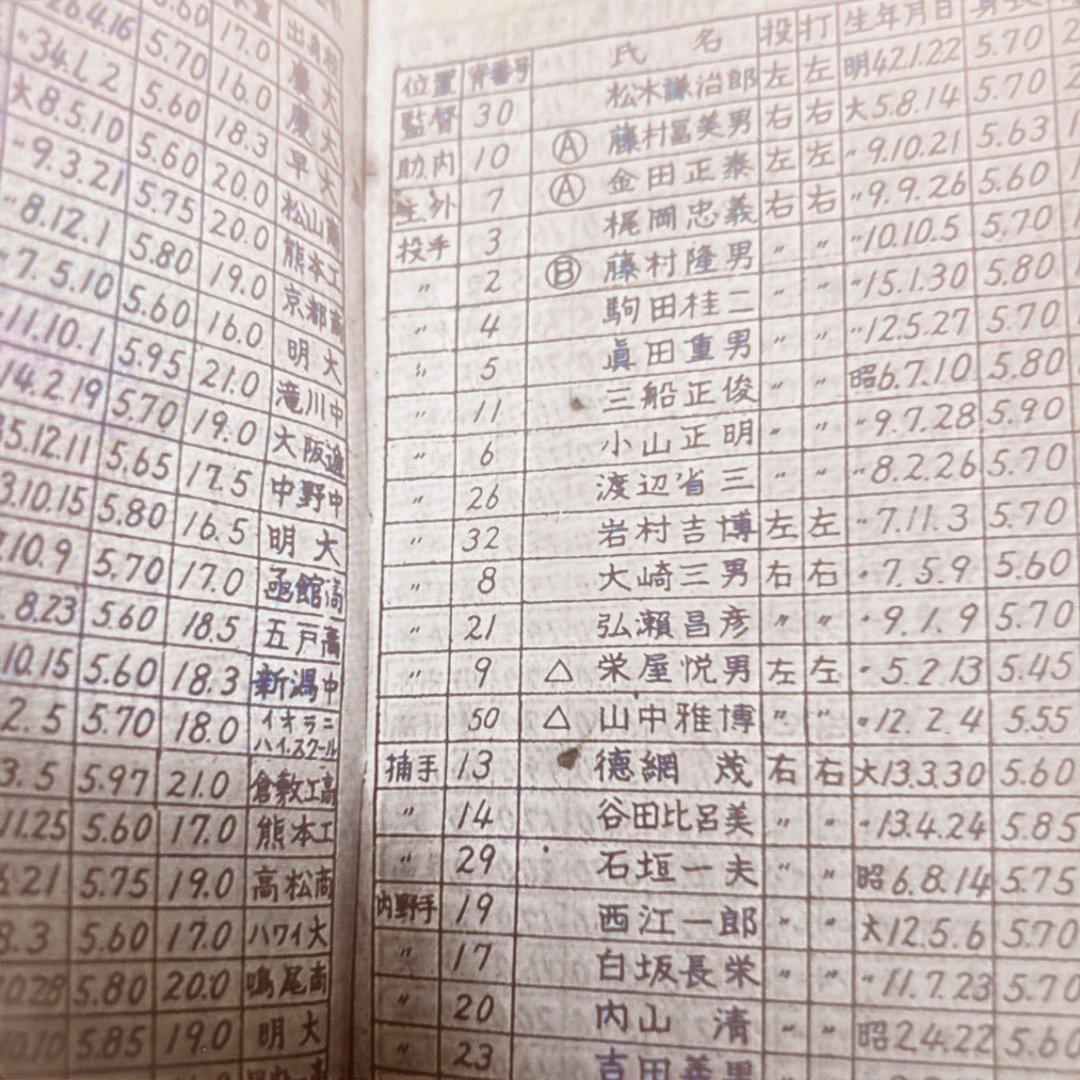 26.4.16 5.60 17.0 慶大
〃34.1.2 5.70 16.0 慶大
大8.5.10 5.60 18.3 早大
〃9.3.21 5.60 20.0 松山商
〃8.12.1 5.75 20.0 熊本工
〃7.5.10 5.80 19.0 京都商
11.10.1 5.60 16.0 明大
14.2.19 5.95 21.0 滝川中
5.12.11 5.70 19.0 大阪逓
3.10.15 5.65 17.5 中野中
10.9 5.80 16.5 明大
8.23 5.70 17.0 函館商
10.15 5.60 18.5 五戸高
2.5 5.60 18.3 新潟中
3.5 5.70 18.0 イオラニハイ.スクール
11.25 5.97 21.0 倉敷工高
5.60 17.0 熊本工
5.75 19.0 高松商
5.60 17.0 ハワイ大
5.80 20.0 鳴尾商
5.85 19.0 明大
位置 背番号 氏名 投 打 生年月日
監督 30 松木謙治郎 左 左 明42.1.22 5.70
助.内 10 Ⓐ 藤村富美男 右 右 大5.8.14 5.70
主.外 7 Ⓐ 金田正泰 左 左 〃9.10.21 5.63
投手 3 梶岡忠義 右 右 〃9.9.26 5.60
〃 2 Ⓑ 藤村隆男 〃 〃 〃10.10.5 5.70
〃 4 駒田桂二 〃 〃 〃15.1.30 5.80
〃 5 眞田重男 〃 〃 〃12.5.27 5.70
〃 11 三船正俊 〃 〃 昭6.7.10 5.80
〃 6 小山正明 〃 〃 〃9.7.28 5.90
〃 26 渡辺省三 〃 〃 〃8.2.26 5.70
〃 32 岩村吉博 左 左 〃7.11.3 5.70
〃 8 大崎三男 右 右 〃7.5.9 5.60
〃 21 弘瀬昌彦 〃 〃 〃9.1.9 5.70
〃 9 △ 栄屋悦男 左 左 〃5.2.13 5.45
50 △ 山中雅博 〃 〃 〃12.2.4 5.55
捕手 13 德網茂 右 右 大13.3.30 5.60
〃 14 谷田比呂美 〃 〃 〃13.4.24 5.85
〃 29 石垣一夫 〃 〃 昭6.8.14 5.75
内野手 19 西江一郎 〃 〃 大12.5.6 5.70
〃 17 白坂長栄 〃 〃 〃11.7.23 5.70
〃 20 内山清 〃 〃 昭2.4.22 5.60
〃 23 吉田義男